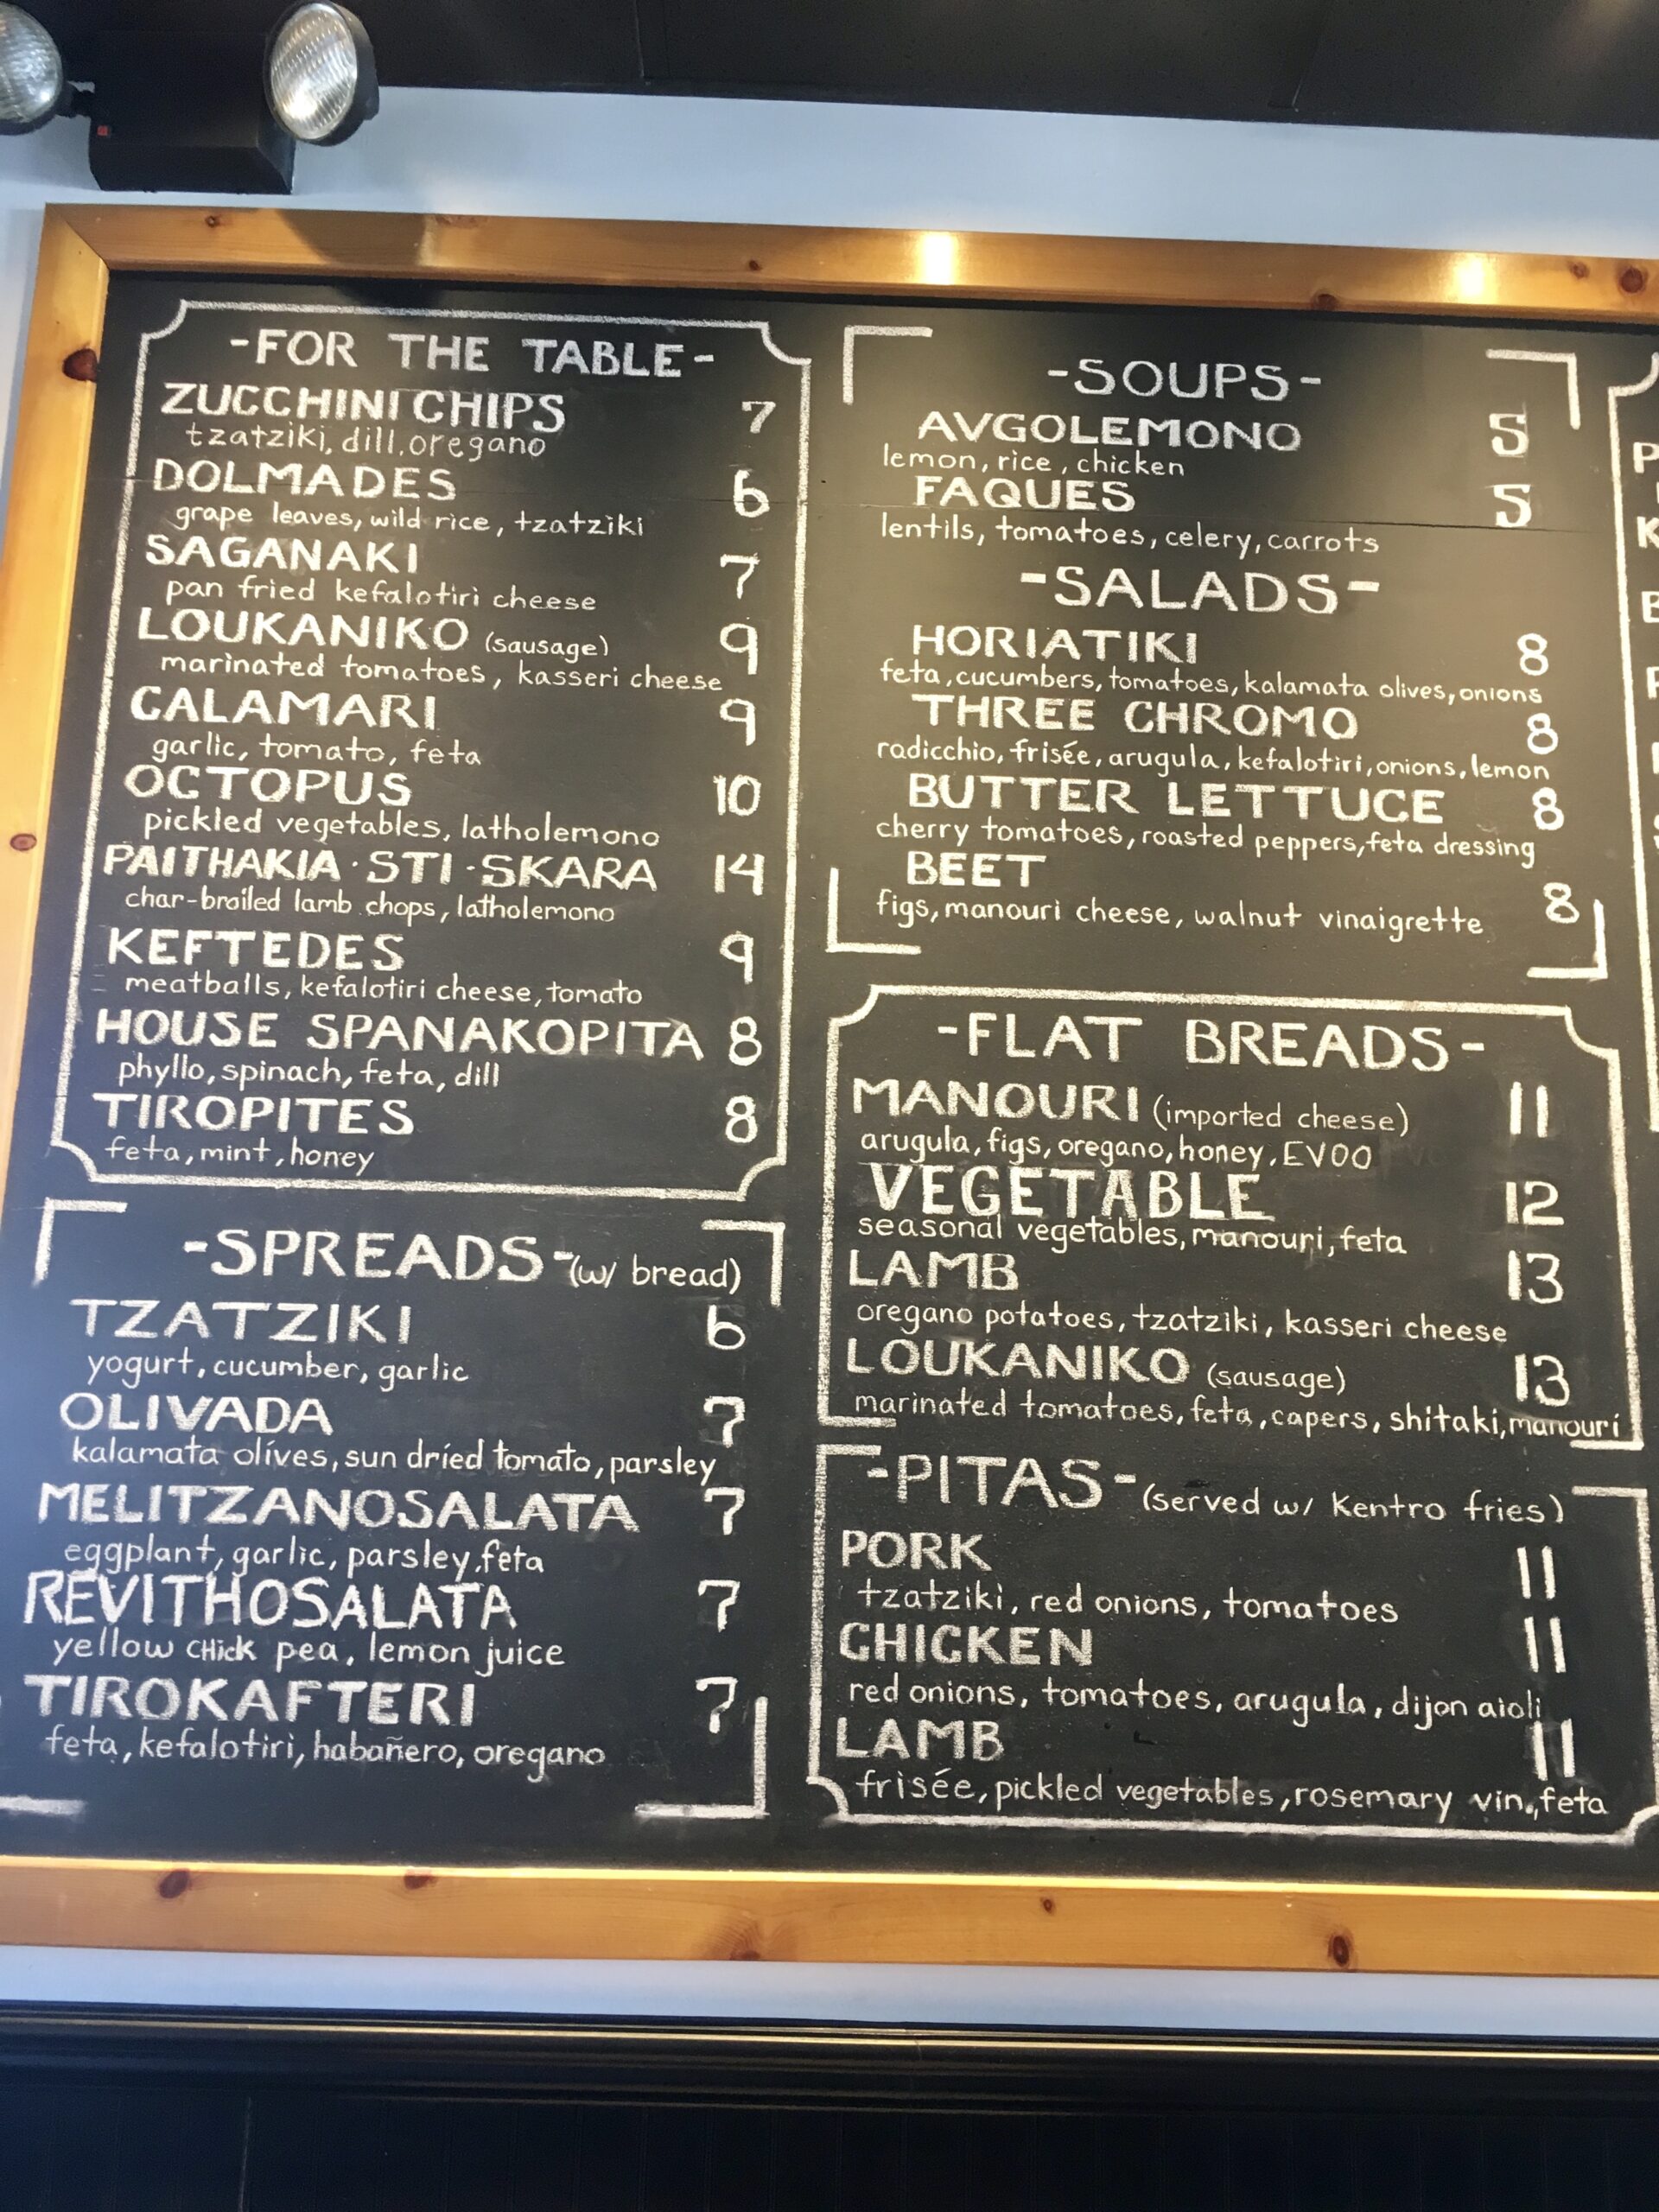 -FOR THE TABLE-
ZUCCHINI CHIPS 7
tzatziki, dill, oregano
DOLMADES 6
grape leaves, wild rice, tzatziki
SAGANAKI 7
pan fried kefalotiri cheese
LOUKANIKO (sausage) 9
marinated tomatoes, kasseri cheese
CALAMARI 9
garlic, tomato, feta
OCTOPUS 10
pickled vegetables, latholemono
PAITHAKIA · STI · SKARA 14
char-broiled lamb chops, latholemono
KEFTEDES 9
meatballs, kefalotiri cheese, tomato
HOUSE SPANAKOPITA 8
phyllo, spinach, feta, dill
TIROPITES 8
feta, mint, honey
-SPREADS- (w/ bread)
TZATZIKI 6
yogurt, cucumber, garlic
OLIVADA 7
kalamata olives, sun dried tomato, parsley
MELITZANOSALATA 7
eggplant, garlic, parsley, feta
REVITHOSALATA 7
yellow CHick pea, lemon juice
TIROKAFTERI 7
feta, kefalotiri, habañero, oregano
-SOUPS-
AVGOLEMONO 5
lemon, rice, chicken
FAQUES 5
lentils, tomatoes, celery, carrots
-SALADS-
HORIATIKI 8
feta, cucumbers, tomatoes, kalamata olives, onions
THREE CHROMO 8
radicchio, frisée, arugula, kefalotiri, onions, lemon
BUTTER LETTUCE 8
cherry tomatoes, roasted peppers, feta dressing
BEET 8
figs, manouri cheese, walnut vinaigrette
-FLAT BREADS-
MANOURI (imported cheese) 11
arugula, figs, oregano, honey, EVOO
VEGETABLE 12
seasonal vegetables, manouri, feta
LAMB 13
oregano potatoes, tzatziki, kasseri cheese
LOUKANIKO (sausage) 13
marinated tomatoes, feta, capers, shitaki, manouri
-PITAS- (served w/ Kentro fries)
PORK 11
tzatziki, red onions, tomatoes
CHICKEN 11
red onions, tomatoes, arugula, dijon aioli
LAMB 11
frisée, pickled vegetables, rosemary vin., feta